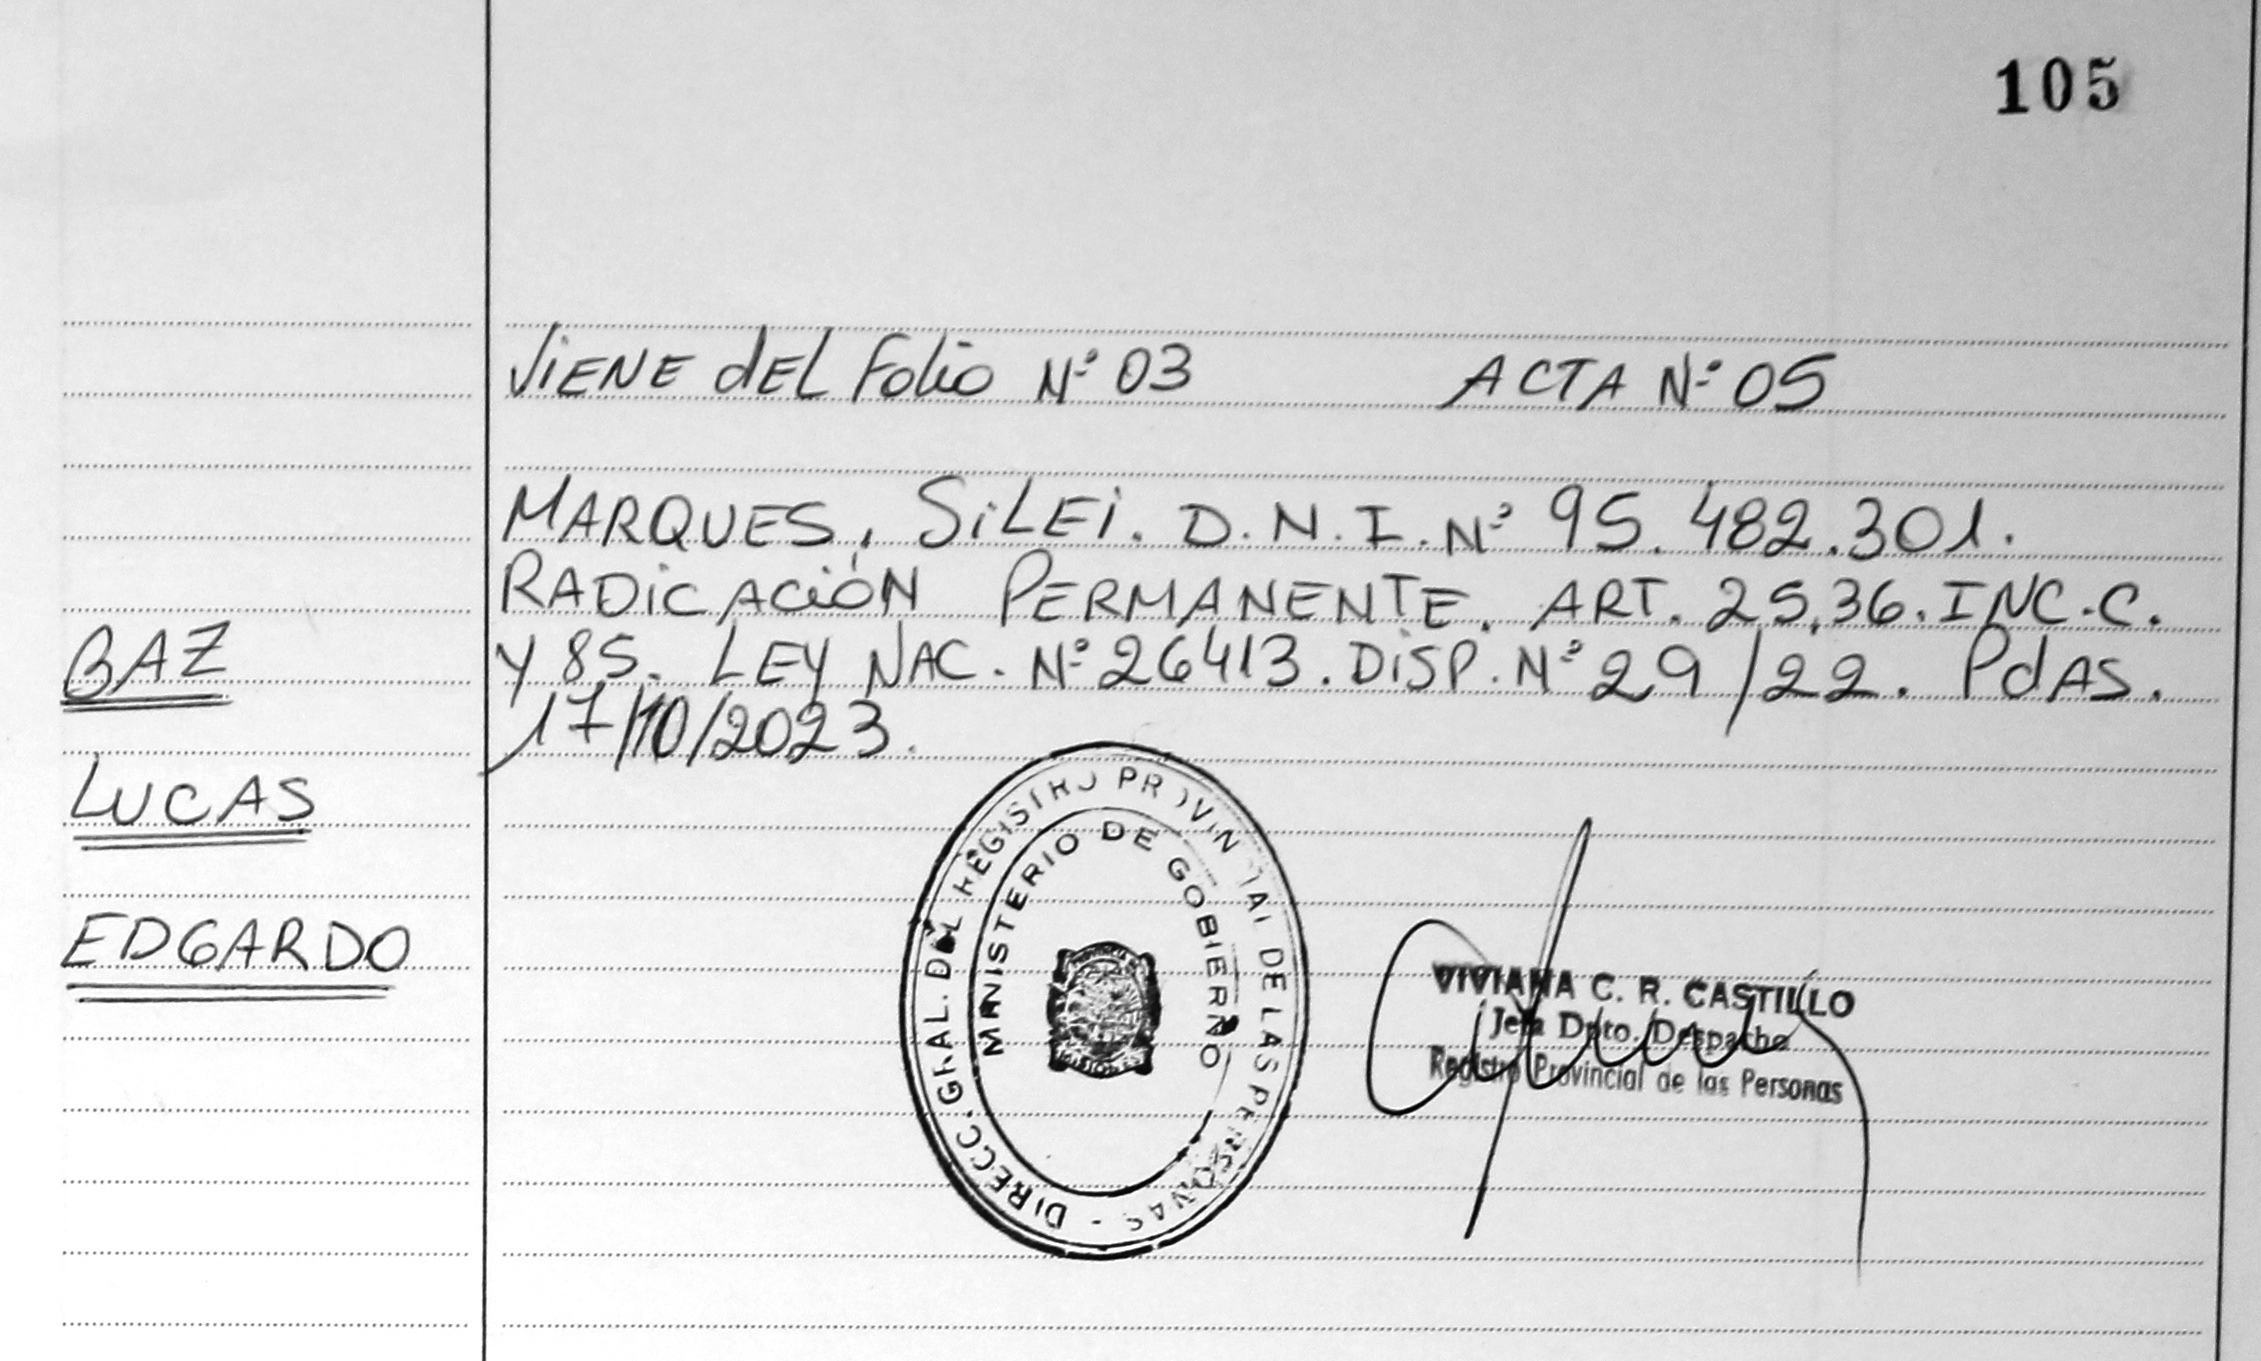 105
Viene del Folio Nº 03 ACTA Nº 05
MARQUES, SiLEi. D.N.I. Nº 95.482.301.
RADiCACióN PERMANENTE. ART. 25,36. INC.C.
BAZ
y 85. LEY NAC. Nº 26413. DiSP. Nº 29/22. PdAS.
17/10/2023.
LUCAS
EDGARDO
DIRECC. GRAL. DEL REGISTRO PROVINCIAL DE LAS PERSONAS -
MINISTERIO DE GOBIERNO
VIVIANA C. R. CASTILLO
Jefa Dpto. Despacho
Registro Provincial de las Personas